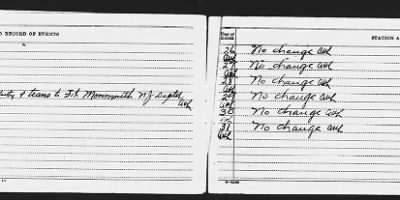 D RECORD OF EVENTS
duty & trans to Ft Monmouth NJ
Day of
month
STATION A
26 No change
27 No change
28 No change
29 No change
30 No change
31 No change